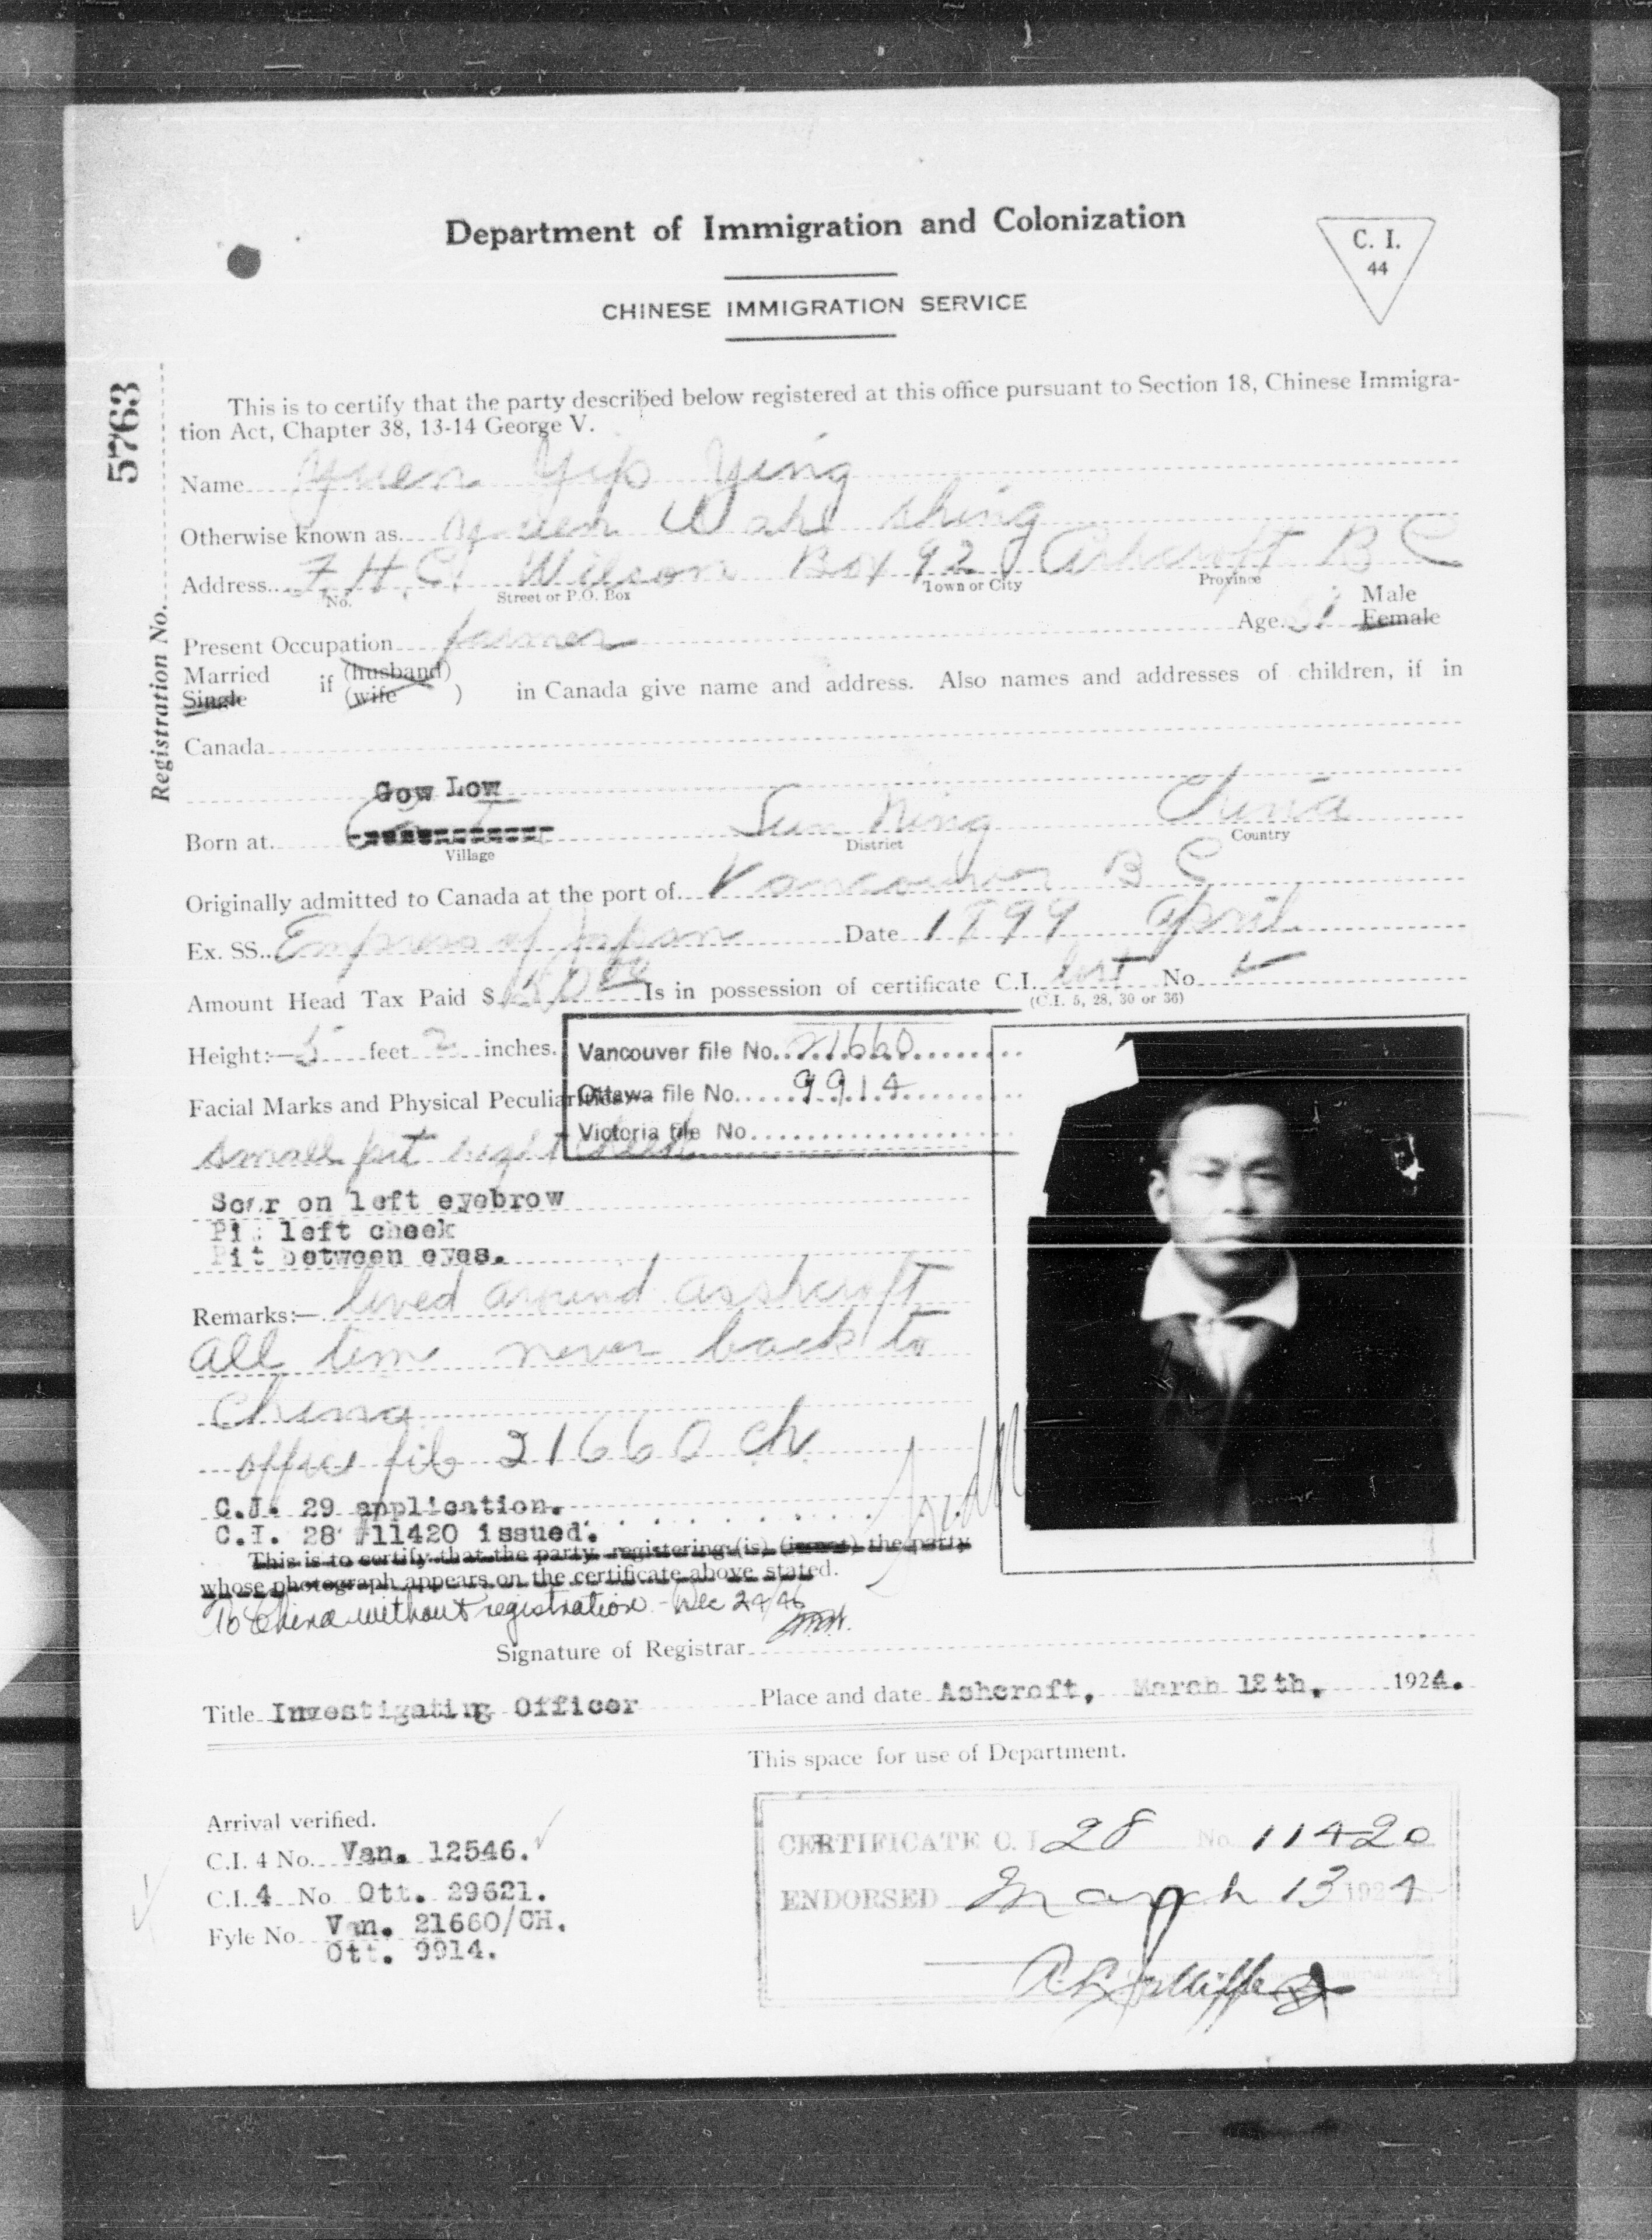 Department of Immigration and Colonization
C. I.
44
CHINESE IMMIGRATION SERVICE
5763
Registration No.
This is to certify that the party described below registered at this office pursuant to Section 18, Chinese Immigra-
tion Act, Chapter 38, 13-14 George V.
Name Yuen Yip Ying
Otherwise known as Yuen Wah Shing
Address F.H.C. Wilson Box 92 Ashcroft B C
No. Street or P.O. Box Town or City Province
Present Occupation farmer Age Male Female
Married
Single if (husband)
(wife ) in Canada give name and address. Also names and addresses of children, if in
Canada
Gow Low
Born at Sun Ning China
Village District Country
Originally admitted to Canada at the port of Vancouver B C
Ex. SS. Empress of Japan Date 1899 April
Amount Head Tax Paid $ 50 00 Is in possession of certificate C.I. lost No.
(C.I. 5, 28, 30 or 36)
Height:— 5 feet 2 inches.
Vancouver file No. 21660
Ottawa file No. 9914
Victoria file No.
Facial Marks and Physical Peculiarities
small pit right cheek
Scar on left eyebrow
Pit left cheek
Pit between eyes.
Remarks:— lived around asshcroft
all time never back to
China
office file 21660 ch
C.I. 29 application.
C.I. 28 #11420 issued.
This is to certify that the party registering (is) (is not) the party
whose photograph appears on the certificate above stated.
To China without registration - Dec 24/46
Signature of Registrar
Title Investigating Officer Place and date Ashcroft, March 12th, 1924.
This space for use of Department.
Arrival verified.
C.I. 4 No. Van. 12546.
C.I. 4 No Ott. 29621.
Fyle No Van. 21660/CH.
Ott. 9914.
CERTIFICATE C. I. 28 No. 11420
ENDORSED March 13 1924